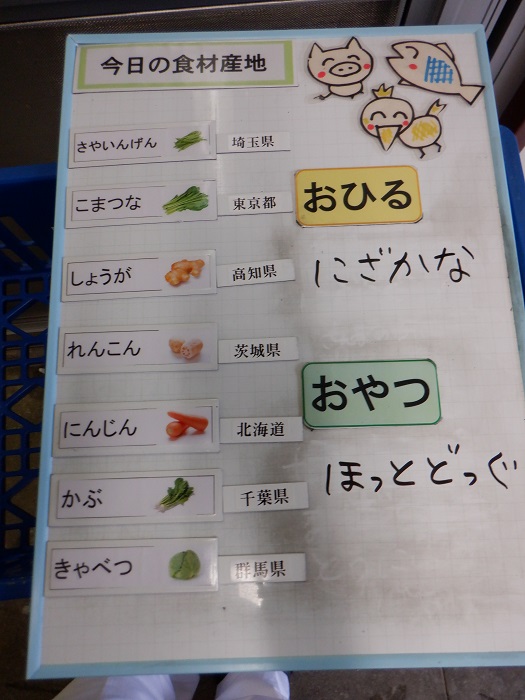 今日の食材産地
さやいんげん 埼玉県
こまつな 東京都
しょうが 高知県
れんこん 茨城県
にんじん 北海道
かぶ 千葉県
きゃべつ 群馬県
おひる
にざかな
おやつ
ほっとどっぐ